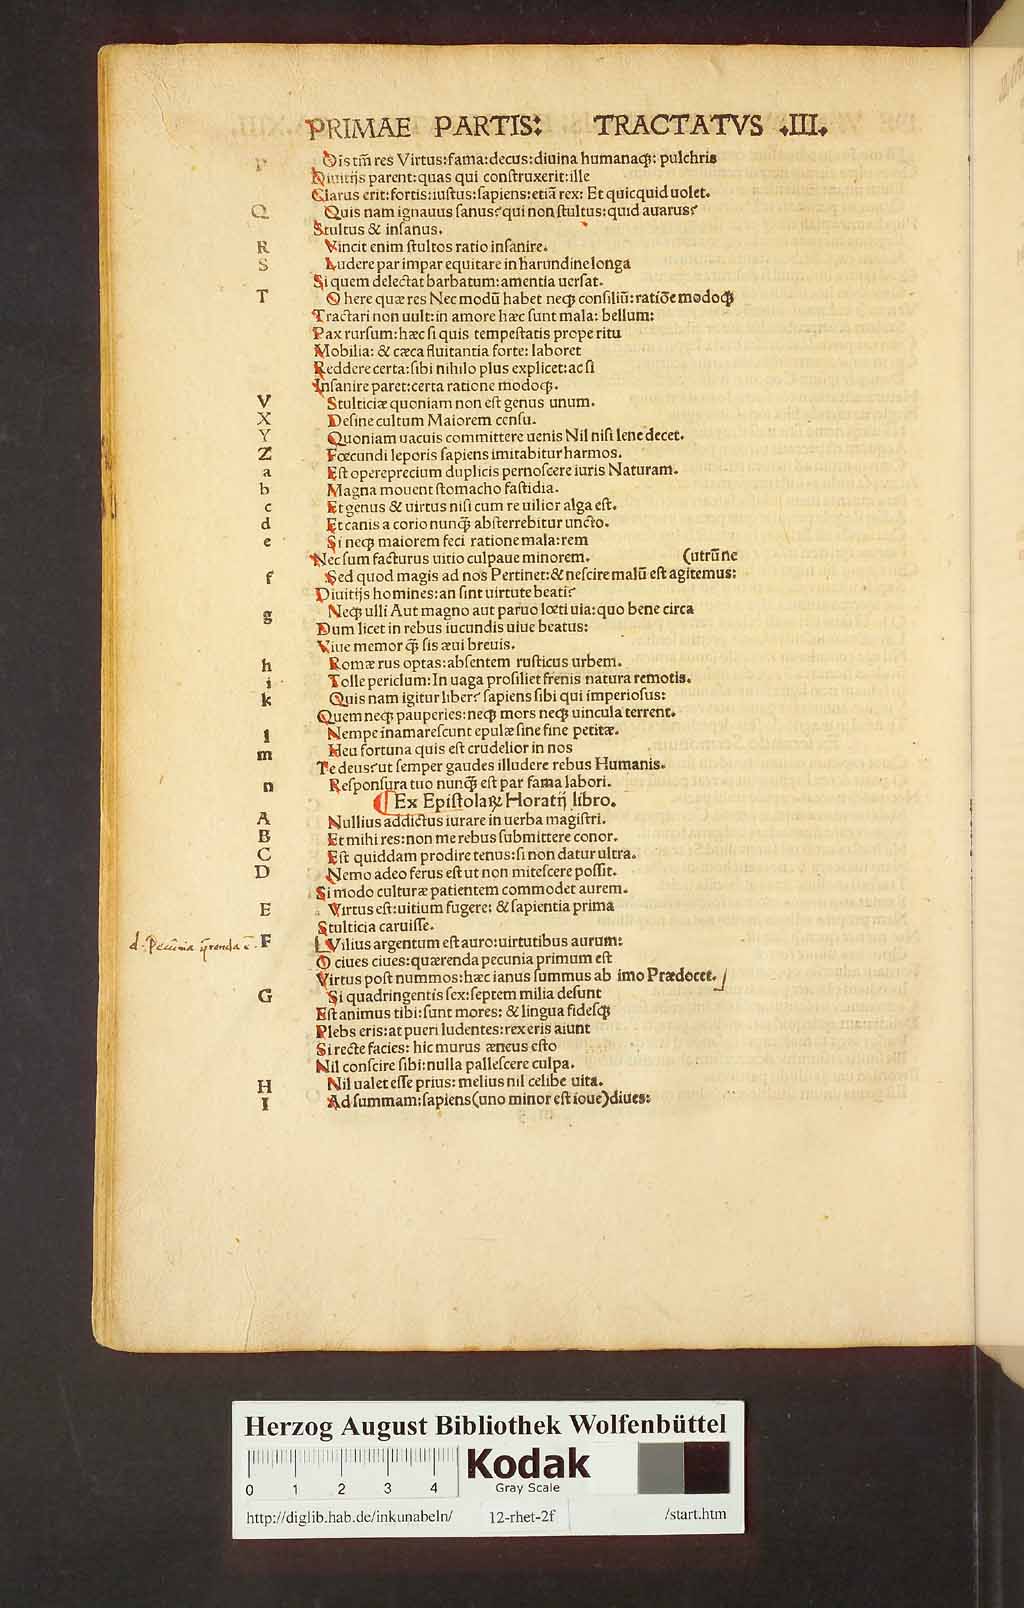 PRIMAE PARTIS: TRACTATVS .III.
P Oīs tm̄ res Virtus:fama:decus:diuina humanaqꝫ: pulchris
Diuitijs parent:quas qui conſtruxerit:ille
Clarus erit:fortis:iuſtus:ſapiens:etiā rex: Et quicquid uolet.
Q Quis nam ignauus ſanus?qui non ſtultus:quid auarus?
Stultus & inſanus.
R Vincit enim ſtultos ratio inſanire.
S Ludere par impar equitare in harundine longa
Si quem delectat barbatum:amentia uerſat.
T O here quæ res Nec modū habet neqꝫ conſiliū:ratiōe modoqꝫ
Tractari non uult:in amore hæc ſunt mala: bellum:
Pax rurſum:hæc ſi quis tempeſtatis prope ritu
Mobilia: & cæca fluitantia forte: laboret
Reddere certa:ſibi nihilo plus explicet:ac ſi
Inſanire paret:certa ratione modoqꝫ.
V Stulticiæ quoniam non eſt genus unum.
X Deſine cultum Maiorem cenſu.
Y Quoniam uacuis committere uenis Nil niſi lene decet.
Z Fœcundi leporis ſapiens imitabitur harmos.
a Eſt opereprecium duplicis pernoſcere iuris Naturam.
b Magna mouent ſtomacho faſtidia.
c Et genus & uirtus niſi cum re uilior alga eſt.
d Et canis a corio nunꝙ̄ abſterrebitur uncto.
e Si neqꝫ maiorem feci ratione mala:rem
Nec ſum facturus uitio culpaue minorem. (utrūne
f Sed quod magis ad nos Pertinet:& neſcire malū eſt agitemus:
Diuitijs homines:an ſint uirtute beati?
g Neqꝫ ulli Aut magno aut paruo lœti uia:quo bene circa
Dum licet in rebus iucundis uiue beatus:
Viue memor ꝙ̄ ſis æui breuis.
h Romæ rus optas:abſentem ruſticus urbem.
i Tolle periclum:In uaga proſiliet frenis natura remotis.
k Quis nam igitur liber? ſapiens ſibi qui imperioſus:
Quem neqꝫ pauperies:neqꝫ mors neqꝫ uincula terrent.
l Nempe inamareſcunt epulæ ſine fine petitæ.
m Heu fortuna quis eſt crudelior in nos
Te deus?ut ſemper gaudes illudere rebus Humanis.
n Reſponſura tuo nunꝙ̄ eſt par fama labori.
¶ Ex Epiſtolaꝝ Horatij libro.
A Nullius addictus iurare in uerba magiſtri.
B Et mihi res:non me rebus ſubmittere conor.
C Eſt quiddam prodire tenus:ſi non datur ultra.
D Nemo adeo ferus eſt ut non miteſcere poſſit.
Si modo culturæ patientem commodet aurem.
E Virtus eſt:uitium fugere: & ſapientia prima
Stulticia caruiſſe.
F Vilius argentum eſt auro:uirtutibus aurum:
O ciues ciues:quærenda pecunia primum eſt
Virtus poſt nummos:hæc ianus ſummus ab imo Prædocet.
G Si quadringentis ſex:ſeptem milia deſunt
Eſt animus tibi:ſunt mores: & lingua fideſqꝫ
Plebs eris:at pueri ludentes:rex eris aiunt
Si recte facies: hic murus æneus eſto
Nil conſcire ſibi:nulla palleſcere culpa.
H Nil ualet eſſe prius: melius nil celibe uita.
I Ad ſummam:ſapiens(uno minor eſt ioue)diues:
Herzog August Bibliothek Wolfenbüttel
Kodak
Gray Scale
0 1 2 3 4
http://diglib.hab.de/inkunabeln/ 12-rhet-2f /start.htm